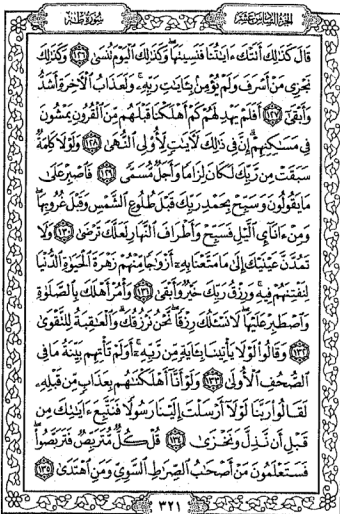 الجزء السادس عشر
سورة طه
قَالَ كَذَٰلِكَ أَتَتْكَ ءَايَٰتُنَا فَنَسِينَهَا ۖ وَكَذَٰلِكَ ٱلْيَوْمَ تُنسَىٰ ١٢٦ وَكَذَٰلِكَ
نَجْزِى مَنْ أَسْرَفَ وَلَمْ يُؤْمِنۢ بِـَٔايَٰتِ رَبِّهِۦ ۚ وَلَعَذَابُ ٱلْءَاخِرَةِ أَشَدُّ
وَأَبْقَىٰٓ ١٢٧ أَفَلَمْ يَهْدِ لَهُمْ كَمْ أَهْلَكْنَا قَبْلَهُم مِّنَ ٱلْقُرُونِ يَمْشُونَ
فِى مَسَٰكِنِهِمْ ۗ إِنَّ فِى ذَٰلِكَ لَءَايَٰتٍ لِّأُو۟لِى ٱلنُّهَىٰ ١٢٨ وَلَوْلَا كَلِمَةٌ
سَبَقَتْ مِن رَّبِّكَ لَكَانَ لِزَامًا وَأَجَلٌ مُّسَمًّى ١٢٩ فَٱصْبِرْ عَلَىٰ
مَا يَقُولُونَ وَسَبِّحْ بِحَمْدِ رَبِّكَ قَبْلَ طُلُوعِ ٱلشَّمْسِ وَقَبْلَ غُرُوبِهَا ۖ
وَمِنْ ءَانَآئِ ٱلَّيْلِ فَسَبِّحْ وَأَطْرَافَ ٱلنَّهَارِ لَعَلَّكَ تَرْضَىٰ ١٣٠ وَلَا
تَمُدَّنَّ عَيْنَيْكَ إِلَىٰ مَا مَتَّعْنَا بِهِۦٓ أَزْوَٰجًا مِّنْهُمْ زَهْرَةَ ٱلْحَيَوٰةِ ٱلدُّنْيَا
لِنَفْتِنَهُمْ فِيهِ ۚ وَرِزْقُ رَبِّكَ خَيْرٌ وَأَبْقَىٰ ١٣١ وَأْمُرْ أَهْلَكَ بِٱلصَّلَوٰةِ
وَٱصْطَبِرْ عَلَيْهَا ۖ لَا نَسْـَٔلُكَ رِزْقًا ۖ نَّحْنُ نَرْزُقُكَ ۗ وَٱلْعَٰقِبَةُ لِلتَّقْوَىٰ
١٣٢ وَقَالُوا۟ لَوْلَا يَأْتِينَا بِـَٔايَةٍ مِّن رَّبِّهِۦٓ ۚ أَوَلَمْ تَأْتِهِم بَيِّنَةُ مَا فِى
ٱلصُّحُفِ ٱلْأُولَىٰ ١٣٣ وَلَوْ أَنَّآ أَهْلَكْنَٰهُم بِعَذَابٍ مِّن قَبْلِهِۦ
لَقَالُوا۟ رَبَّنَا لَوْلَآ أَرْسَلْتَ إِلَيْنَا رَسُولًا فَنَتَّبِعَ ءَايَٰتِكَ مِن
قَبْلِ أَن نَّذِلَّ وَنَخْزَىٰ ١٣٤ قُلْ كُلٌّ مُّتَرَبِّصٌ فَتَرَبَّصُوا۟ ۖ
فَسَتَعْلَمُونَ مَنْ أَصْحَٰبُ ٱلصِّرَٰطِ ٱلسَّوِىِّ وَمَنِ ٱهْتَدَىٰ ١٣٥
٣٢١